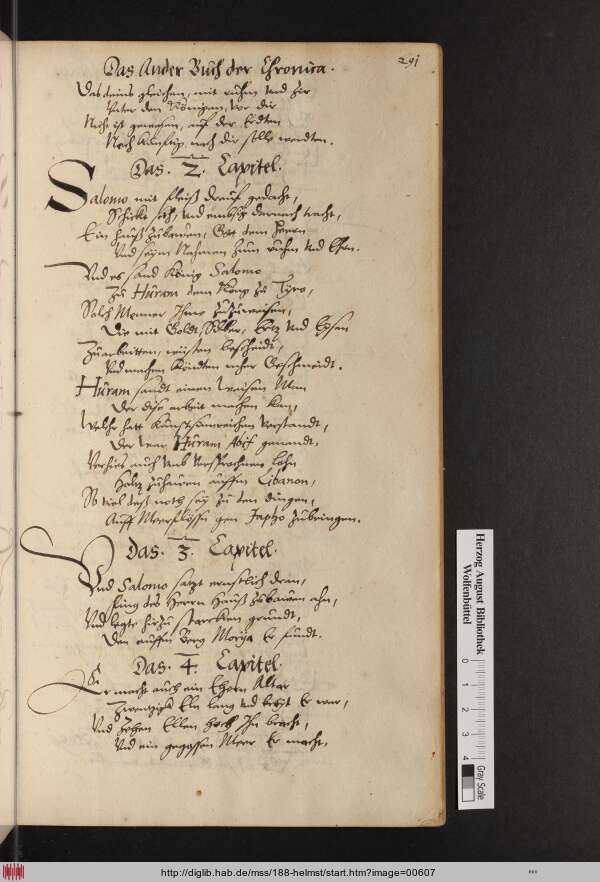 291
Das Ander Buch der Chronica.
Das deins gleichen, mit ruhm und Zir
Unter den Königen, vor dir
Nicht ist gewesen, auf der Erdten
Noch künftig nach dir solle werdten.
Das. 2. Capitel.
Salomo mit fleiß drauf gedacht,
Schickt sich, und embsig darnach tracht,
Ein hauß Zubawen, Gott dem Herrn
Und seym Nahmen Zum ruhm und Ehrn.
Und es sand König Salomo
Zu Hüram dem König Zu Tyro,
Solch Menner Ihme Zuzuweisen,
Die mit Goldt, Silber, Ertz und Eysen
Zuarbeitten, wüsten bescheidt,
Und machen köndten mehr Geschmeidt.
Hüram sandt einen weisen Man
Der dise arbeit machen kan,
Welcher hatt kunstsamreichen verstandt,
Der war Hüram Abif genandt,
Verhies auch umb versprochnen lohn
Holtz Zuhawen auffm Libanon,
So viel deß noth sey Zu den dingen,
Auff Meerflössen gen Japho Zubringen.
Das. 3. Capitel.
Und Salomo satzt ernstlich dran,
fing des Herrn Hauß Zubawen ahn,
Und legte hirzu starcken grundt,
Den auffm Berg Morija Er fundt.
Das. 4. Capitel.
Er macht auch ein Ehern Altar
Zwentzigk Eln lang und breyt Er war,
Und Zehen Ellen hoch Ihn bracht,
Und ein gegossen Meer Er macht,
Herzog August Bibliothek
Wolfenbüttel
0 1 2 3 4
Gray Scale
http://diglib.hab.de/mss/188-helmst/start.htm?image=00607